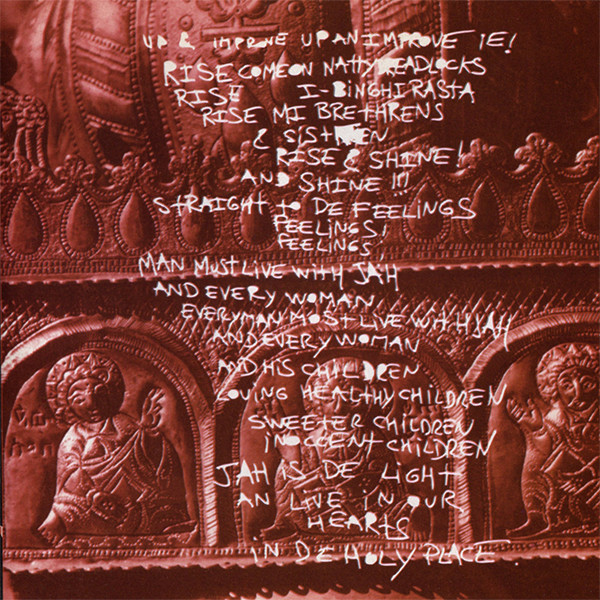 UP & IMPROVE UP AN IMPROVE IE!
RISE COME ON NATTY DREADLOCKS
RISE I-BINGHI RASTA
RISE MI BRETHRENS
& SISTREN
RISE & SHINE!
AND SHINE!!!
STRAIGHT to DE FEELINGS
FEELINGS!
FEELINGS
MAN MUST LIVE WITH JAH
AND EVERY WOMAN
EVERYMAN MOST LIVE WITH JAH
AND EVERY WOMAN
AND HIS CHILDREN
LOVING HEALTHY CHILDREN
SWEETER CHILDREN
INOCCENT CHILDREN
JAH IS DE LIGHT
AN LIVE IN OUR
HEARTS
IN DE HOLY PLACE